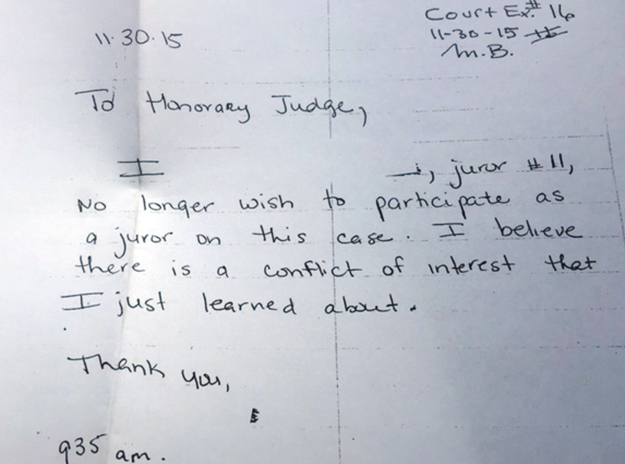 Court Ex.# 16
11·30·15
11-30-15
M.B.
To Honorary Judge,
I , juror #11,
No longer wish to participate as
a juror on this case. I believe
there is a conflict of interest that
I just learned about.
Thank you,
935 am.